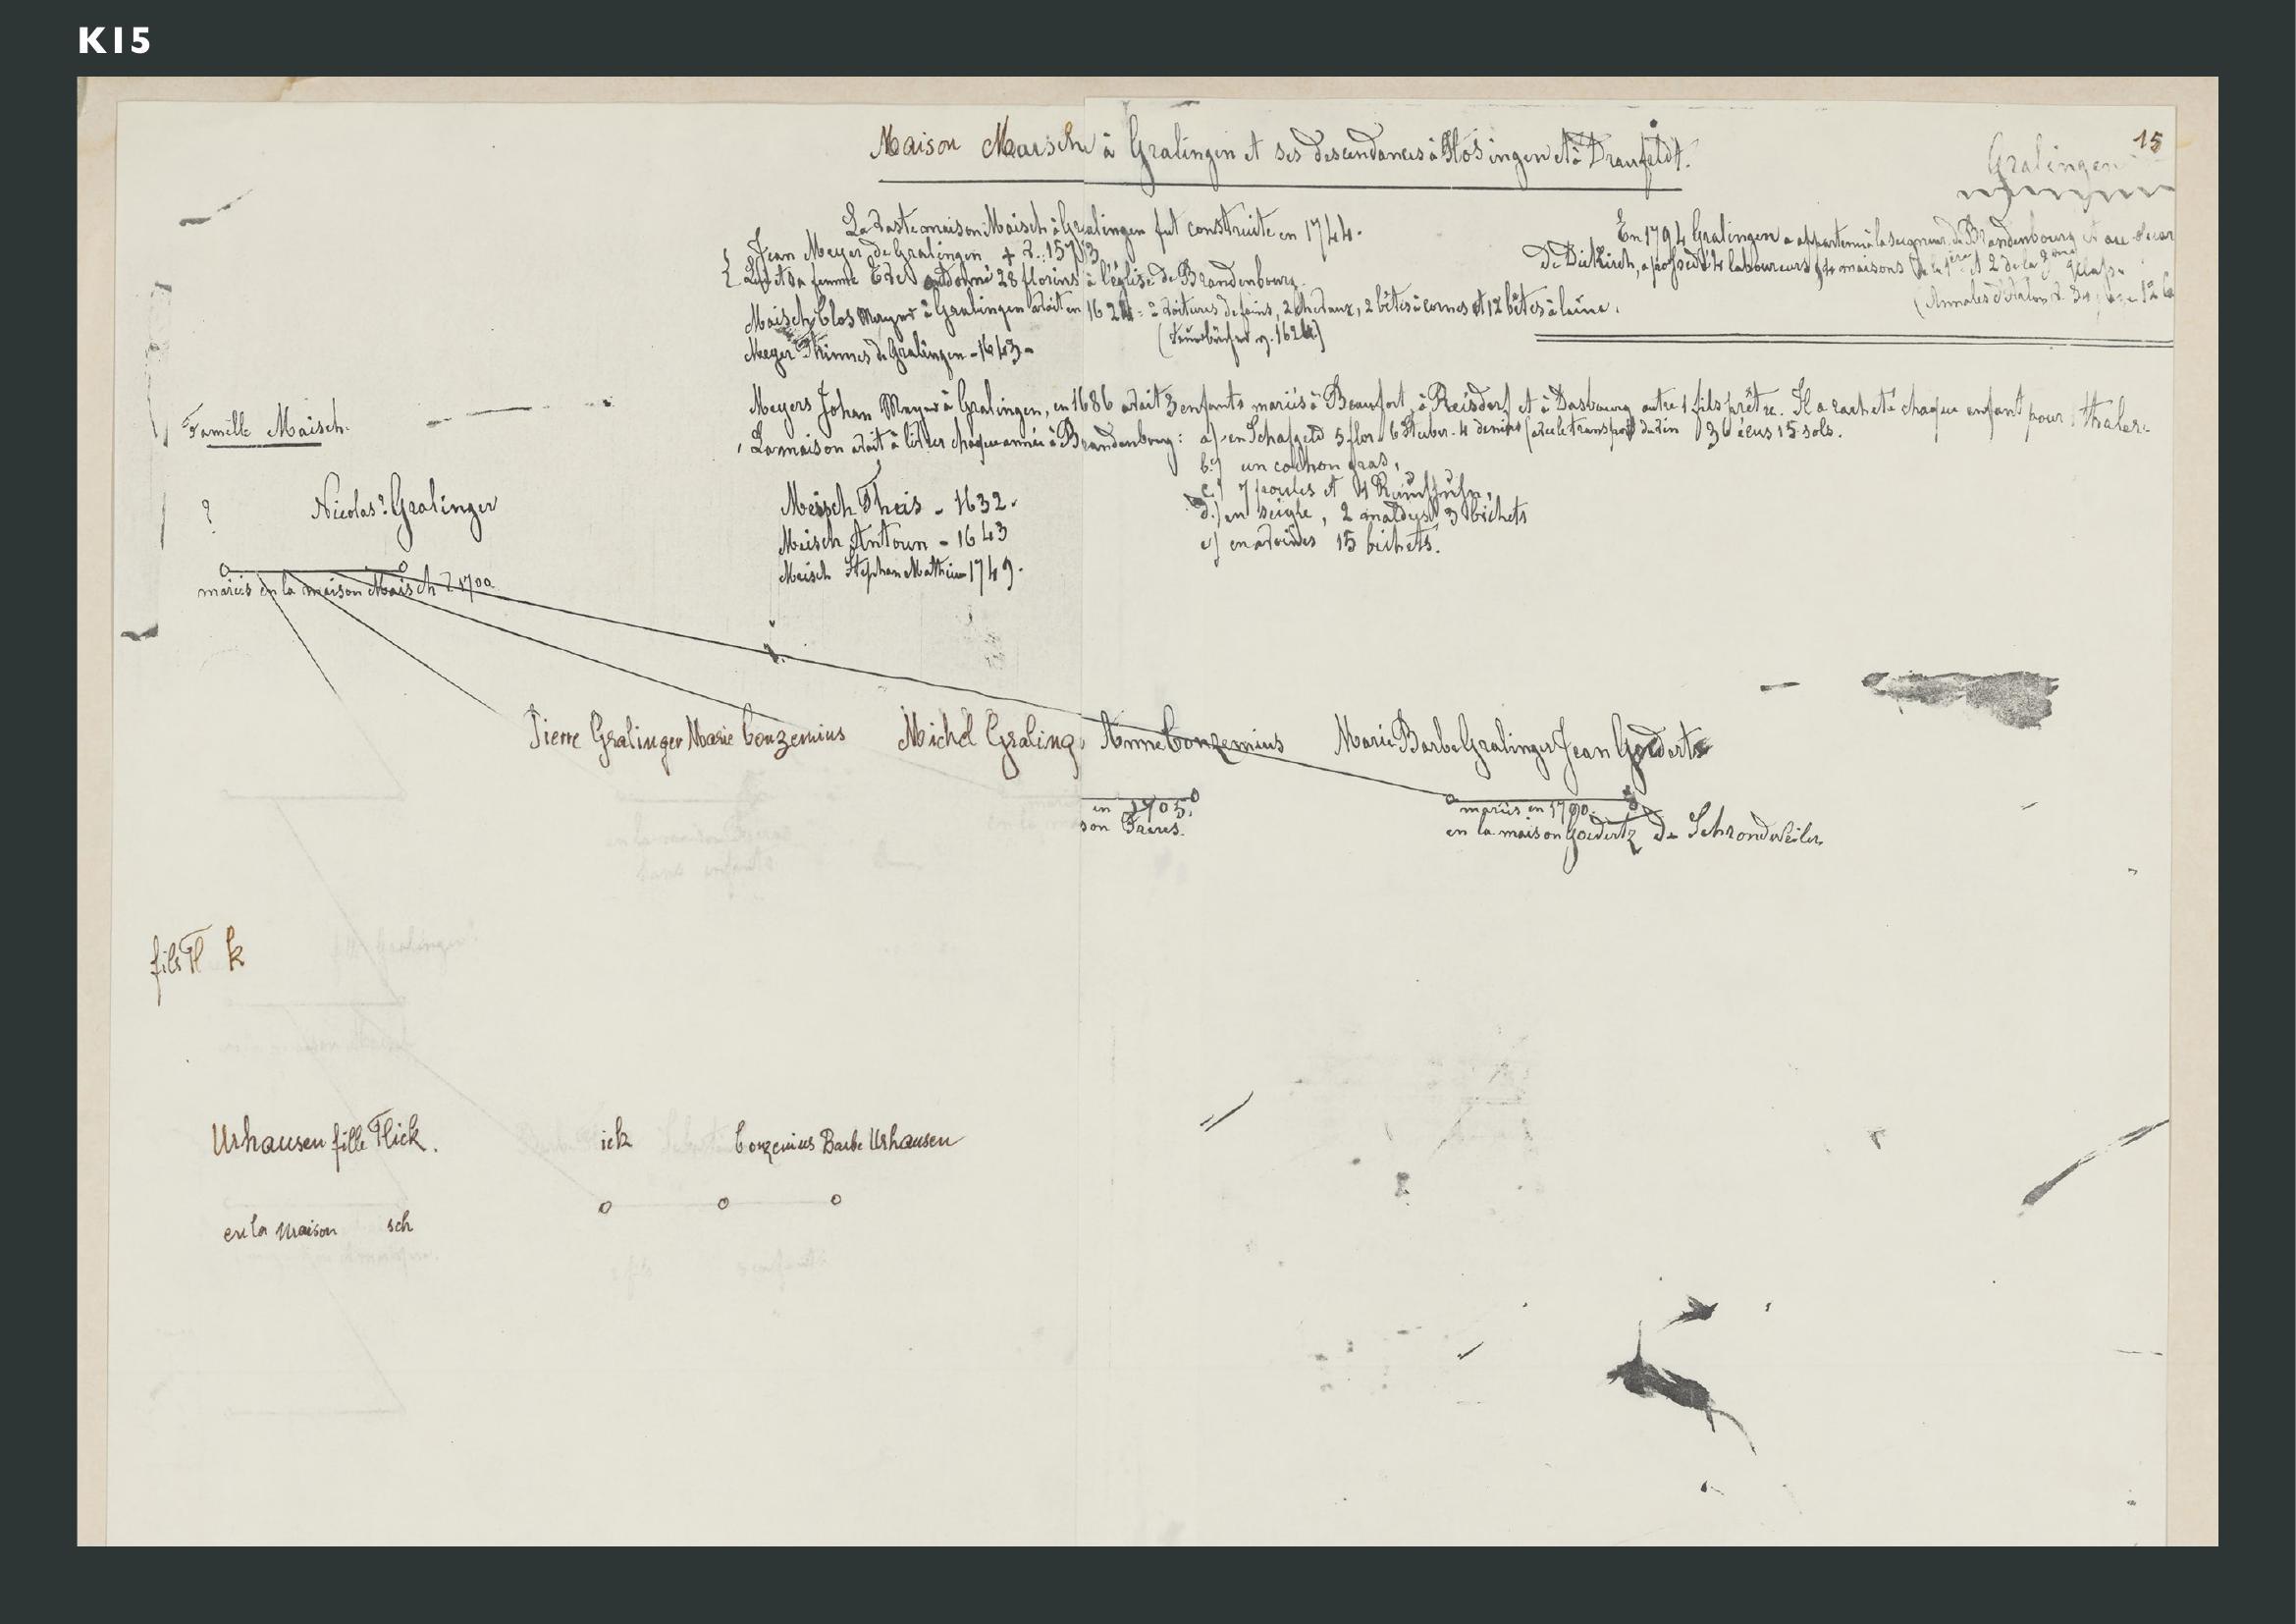 K15
15
Maison Maisch à Gralingen et ses descendances à Hosingen et à Draufeldt.
Gralingen
La vaste maison Maisch à Gralingen fut construite en 1744.
Jean Meyer de Gralingen + v. 1573
Lui et sa femme ont donné 28 florins à l'église de Brandenbourg.
Maisch Clos Meyer à Gralingen avait en 1624: 2 voitures de foins, 2 chevaux, 2 bêtes à cornes et 12 bêtes à laine.
1624)
Meyer Thinnes de Gralingen - 1643 -
En 1794 Gralingen a appartenu à la seigneur. de Brandenbourg et au
de Diekirch, a possédé 4 laboureurs, maisons de la 1ère et 2 de la 2me classe
(Annales d'Arlon
Meyers Johan Meyer à Gralingen, en 1686 avait 3 enfants mariés à Beaufort, à Reisdorf et à Dasbourg outre 1 fils prêtre. Il a racheté chaque enfant pour 1 thaler.
La maison avait à livrer chaque année à Brandenbourg: a) en Schafgeld 5 flor. 6 Stuber. 4 deniers (avec le transport du vin 36 écus 15 sols.
b.) un cochon gras,
c.) 7 poules et 4
d.) en seigle, 2 maldres 3 bichets
e) en avoines 15 bichets.
Famille Maisch.
? Nicolas? Gralinger
mariés en la maison Maisch v 1700
Meisch Theis - 1632.
Meisch Antoun - 1643
Meisch Stephan Mathieu 1749.
Pierre Gralinger Marie Conzemius Michel Graling Anne Conzemius Marie Barbe Gralinger Jean Goederts
en 1705.
son Frères.
mariés en 1700.
en la maison Goedertz de Schrondweiler
fils Fl k
Urhausen fille Flick. ick Conzemius Barbe Urhausen
en la maison sch